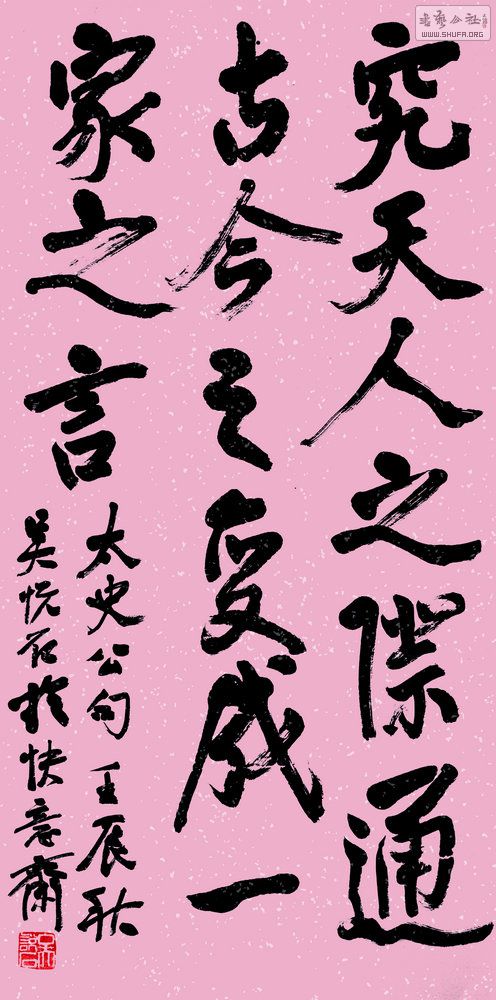 究天人之際通
古今之变成一
家之言
太史公句 壬辰秋
吴悦石於快意齋
书艺公社
WWW.SHUFA.ORG